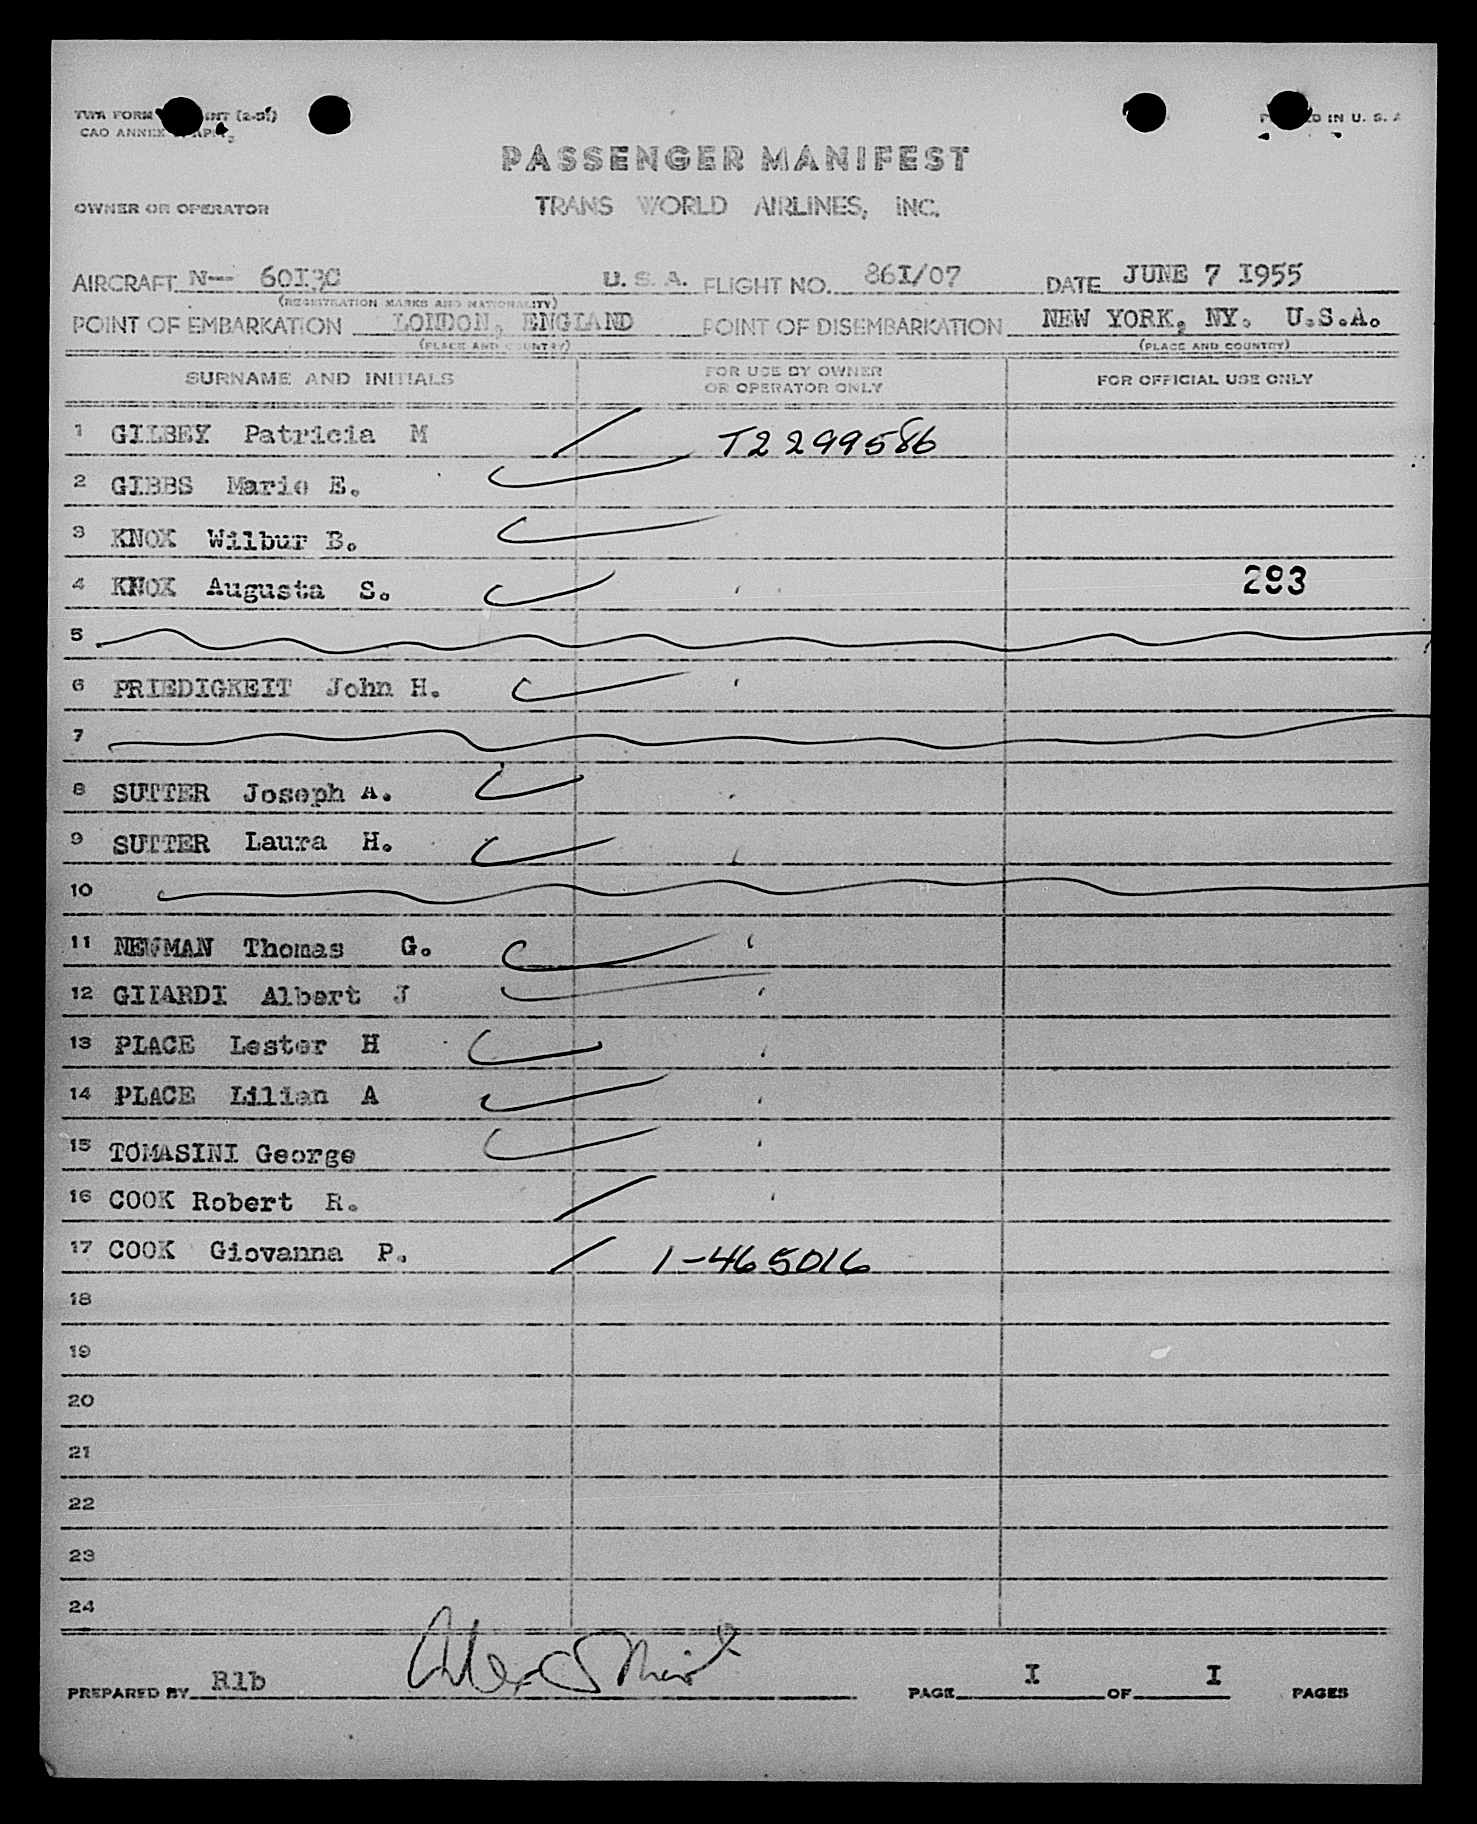 TWA FORM INT (2-51)
CAO ANNEX
IN U. S. A
PASSENGER MANIFEST
OWNER OR OPERATOR TRANS WORLD AIRLINES, INC.
AIRCRAFT N-- 60I3C U. S. A. FLIGHT NO. 86I/07 DATE JUNE 7 I955
(REGISTRATION MARKS AND NATIONALITY)
POINT OF EMBARKATION LONDON, ENGLAND POINT OF DISEMBARKATION NEW YORK, NY. U.S.A.
(PLACE AND COUNTRY) (PLACE AND COUNTRY)
SURNAME AND INITIALS FOR USE BY OWNER OR OPERATOR ONLY FOR OFFICIAL USE ONLY
1 GILBEY Patricia M T2299586
2 GIBBS Marie E.
3 KNOX Wilbur B.
4 KNOX Augusta S. 293
5
6 PRIEDIGKEIT John H.
7
8 SUTTER Joseph A.
9 SUTTER Laura H.
10
11 NEWMAN Thomas G.
12 GILARDI Albert J
13 PLACE Lester H
14 PLACE Lilian A
15 TOMASINI George
16 COOK Robert R.
17 COOK Giovanna P. 1-465016
18
19
20
21
22
23
24
PREPARED BY Rlb PAGE I OF I PAGES